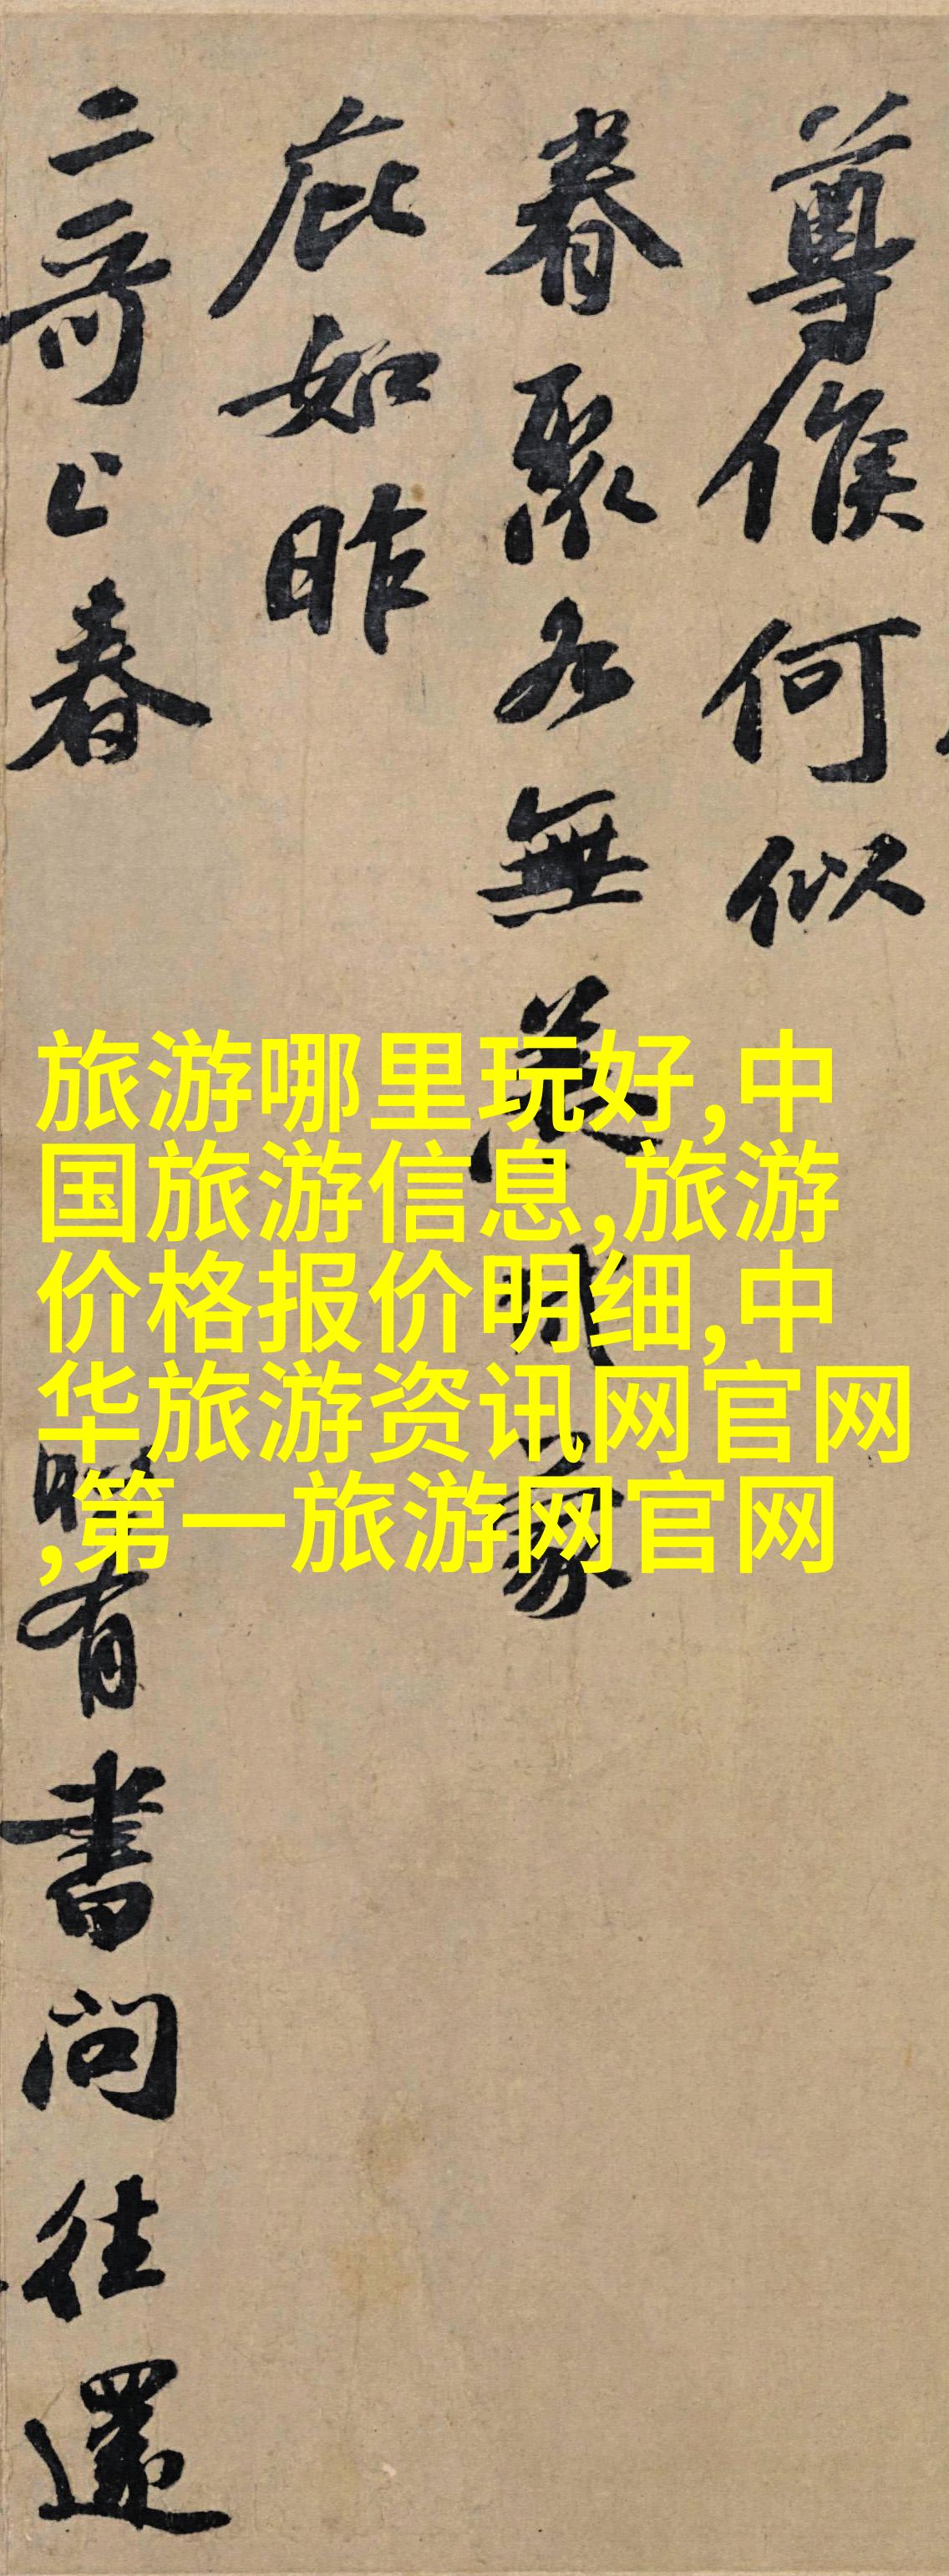 尊候何似
眷聚各無蒙
庇如昨
二哥上春有書問往還
旅游哪里玩好,中
国旅游信息,旅游
价格报价明细,中
华旅游资讯网官网
,第一旅游网官网